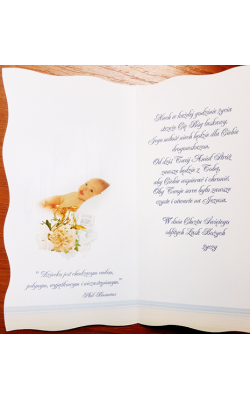 "Dziecko jest chodzącym cudem,
jedynym, wyjątkowym i niezastąpionym."
Phil Bosmans
Niech w każdej godzinie życia
strzeże Cię Bóg łaskawy,
Jego miłość niech będzie dla Ciebie
drogowskazem.
Od dziś Twój Anioł Stróż
zawsze będzie z Tobą,
aby Ciebie wspierać i chronić.
Oby Twoje serce było zawsze
czyste i otwarte na Jezusa.
W dniu Chrztu Świętego
obfitych Łask Bożych
życzy